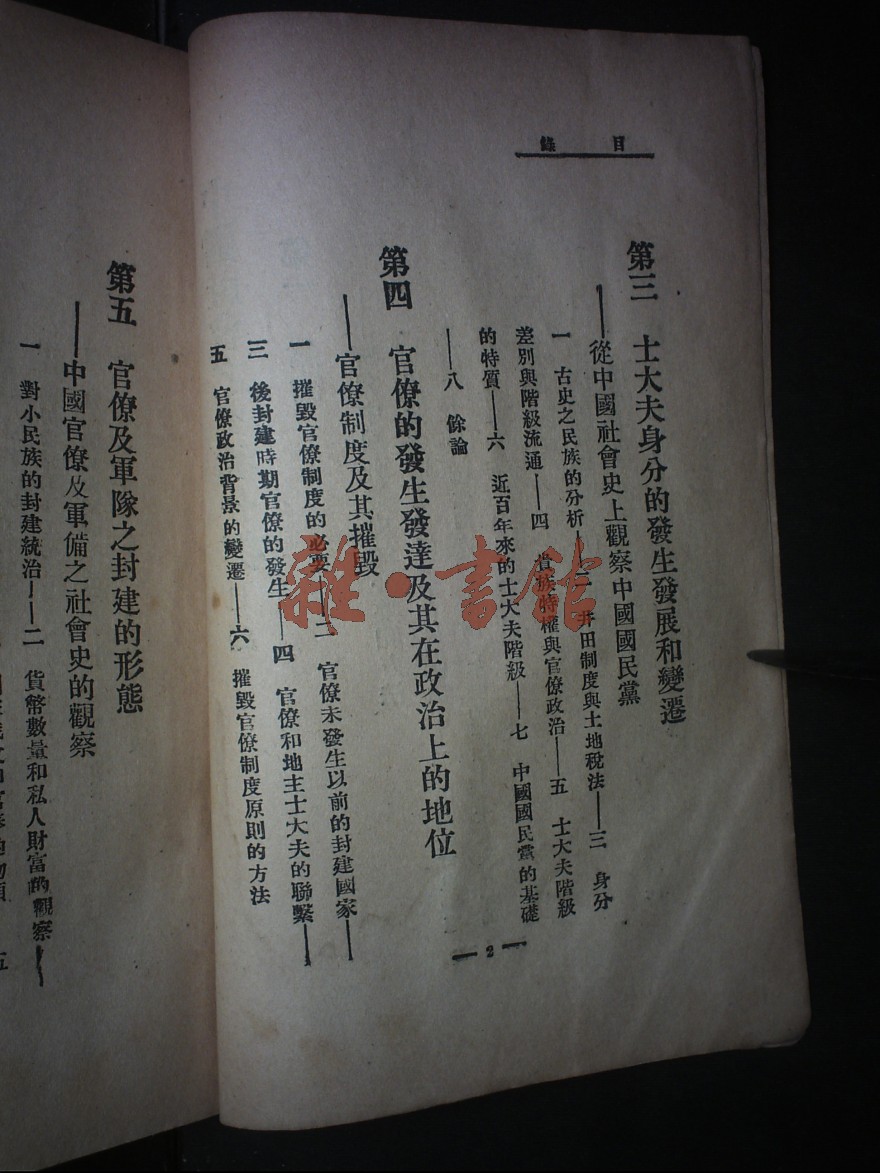 目錄
第三 士大夫身分的發生發展和變遷
——從中國社會史上觀察中國國民黨
一 古史之民族的分析——二 井田制度與土地稅法——三 身分
差別與階級流通——四 貴族特權與官僚政治——五 士大夫階級
的特質——六 近百年來的士大夫階級——七 中國國民黨的基礎
——八 餘論
第四 官僚的發生發達及其在政治上的地位
——官僚制度及其摧毀
一 摧毀官僚制度的必要——二 官僚未發生以前的封建國家——
三 後封建時期官僚的發生——四 官僚和地主士大夫的聯繫——
五 官僚政治背景的變遷——六 摧毀官僚制度原則的方法
— 2 —
第五 官僚及軍隊之封建的形態
——中國官僚及軍備之社會史的觀察
一 對小民族的封建統治——二 貨幣數量和私人財富的觀察——
雜·書館